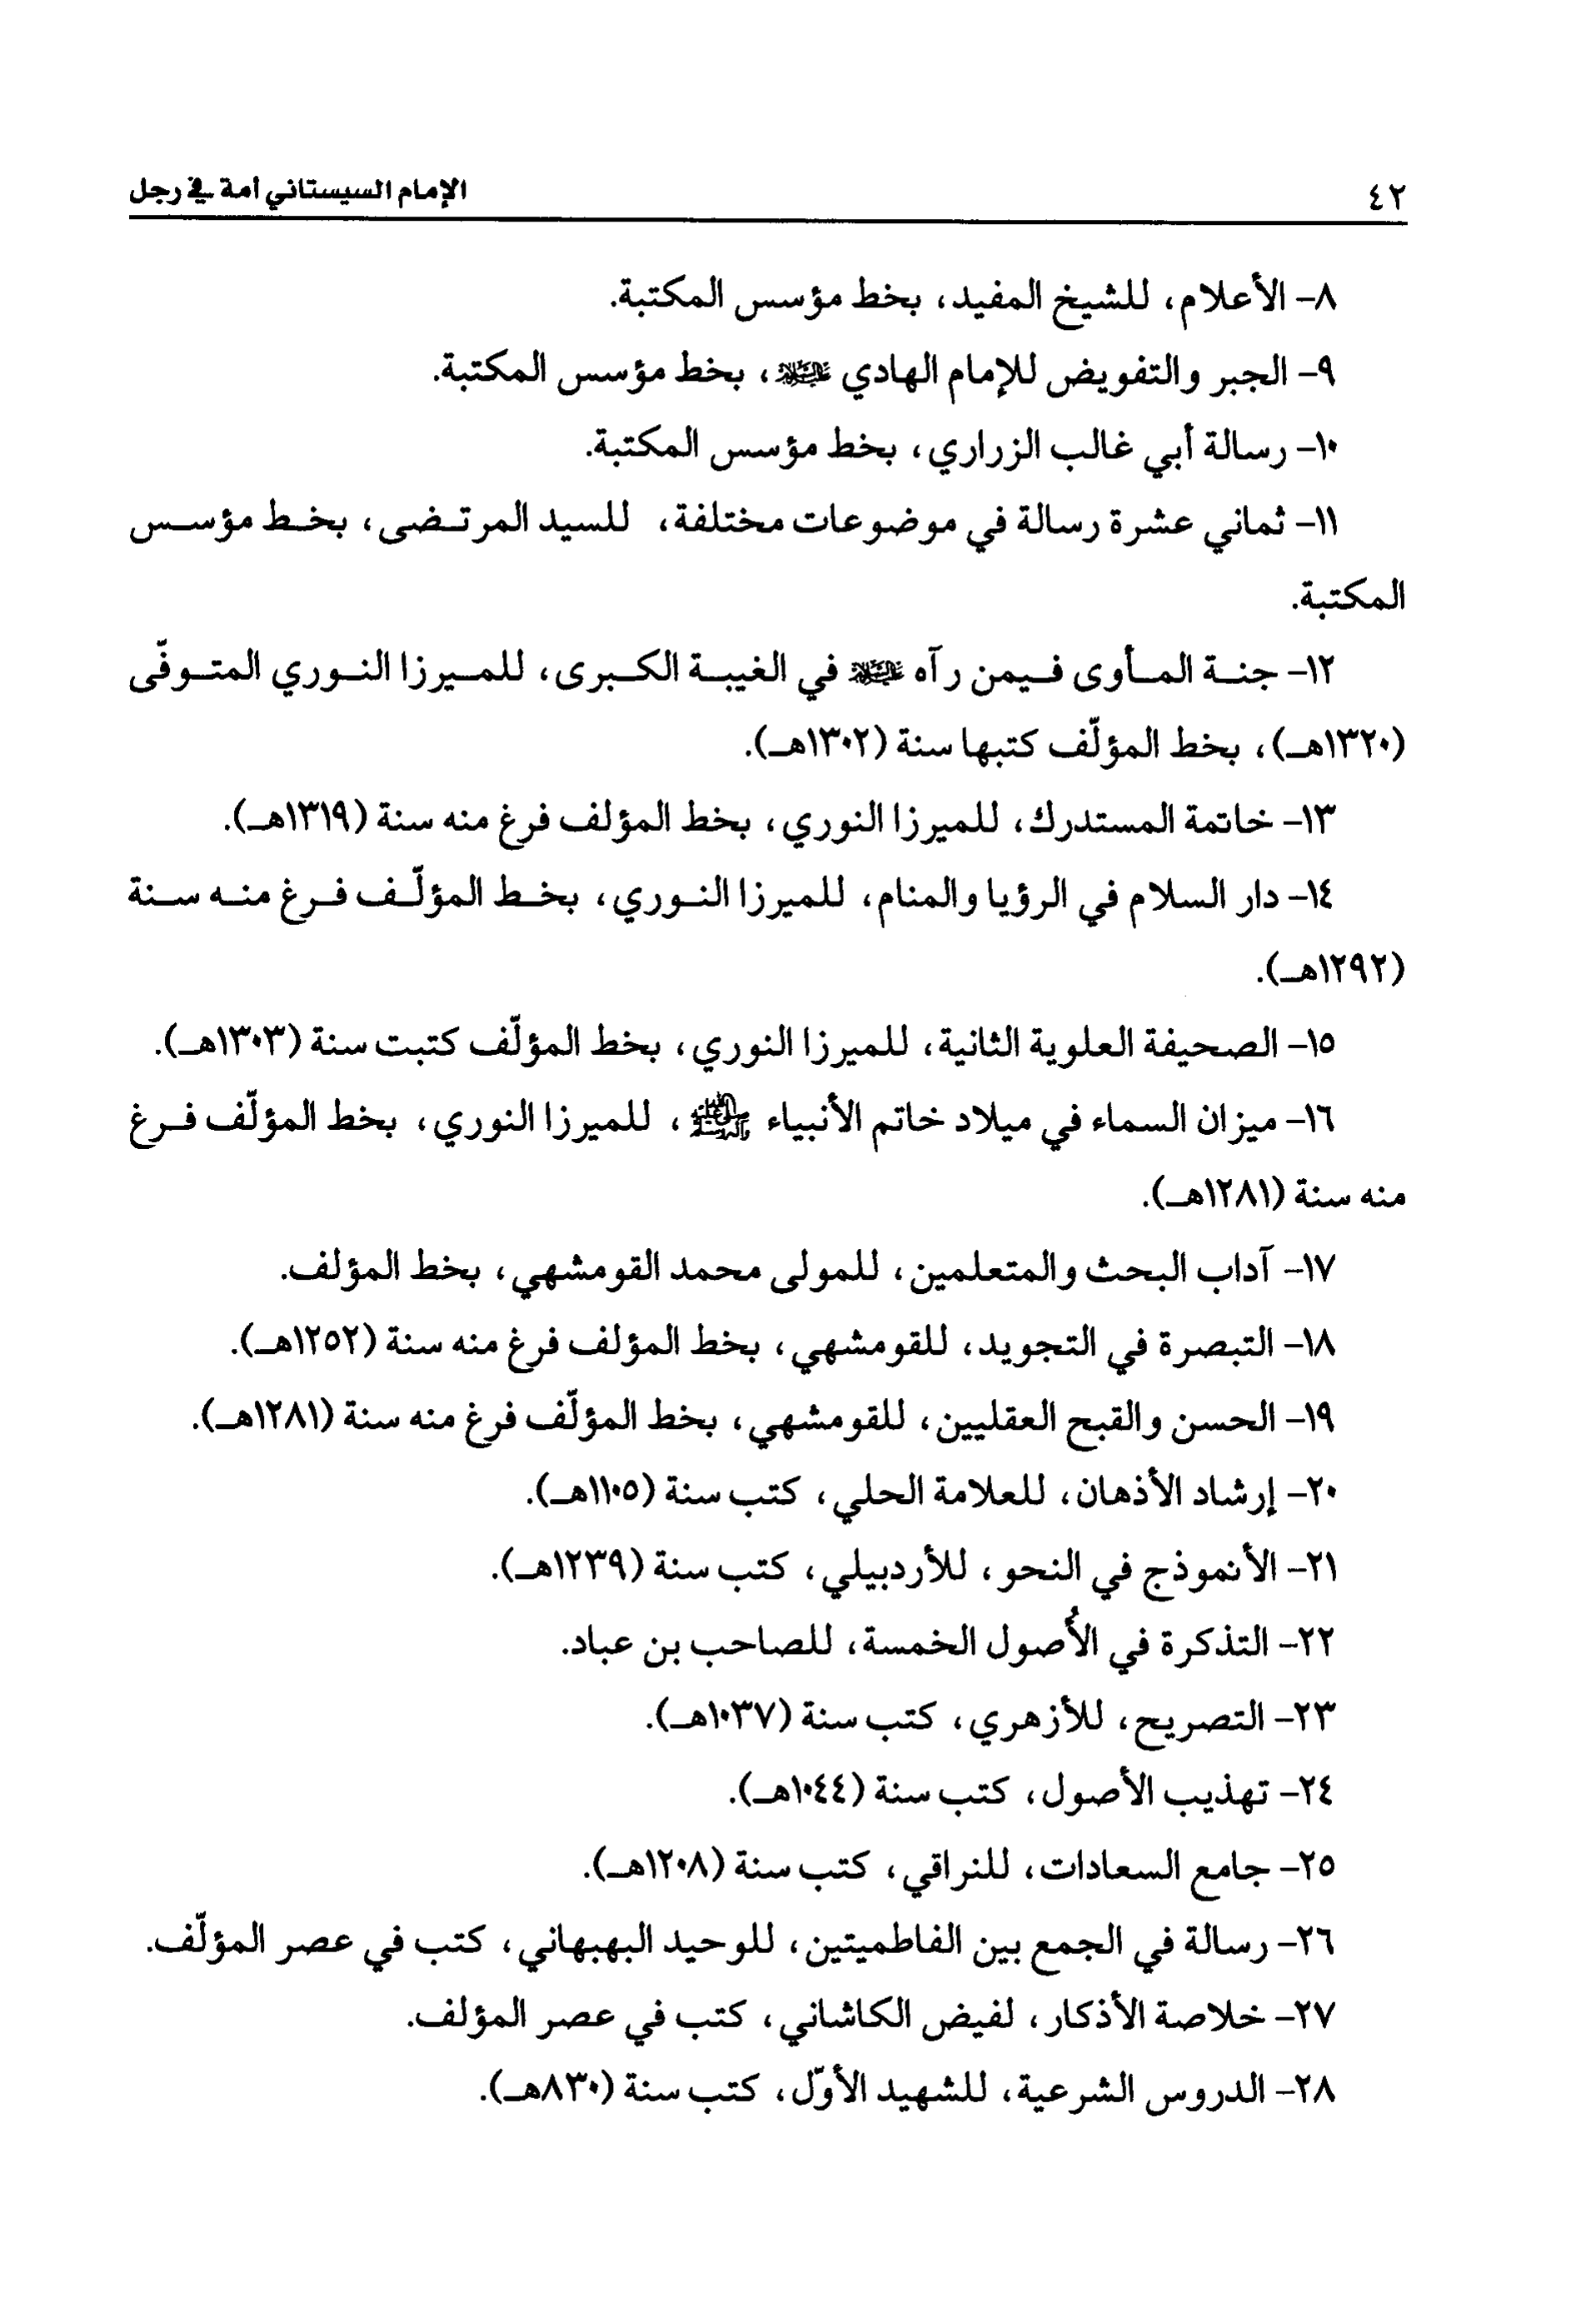 ٤٢
الإمام السيستاني أمة في رجل
٨- الأعلام، للشيخ المفيد، بخط مؤسس المكتبة.
٩- الجبر والتفويض للإمام الهادي عليه السلام، بخط مؤسس المكتبة.
١٠- رسالة أبي غالب الزراري، بخط مؤسس المكتبة.
١١- ثماني عشرة رسالة في موضوعات مختلفة، للسيد المرتضى، بخط مؤسس
المكتبة.
١٢- جنة المأوى فيمن رآه عليه السلام في الغيبة الكبرى، للميرزا النوري المتوفّى
(١٣٢٠هـ)، بخط المؤلّف كتبها سنة (١٣٠٢هـ).
١٣- خاتمة المستدرك، للميرزا النوري، بخط المؤلف فرغ منه سنة (١٣١٩هـ).
١٤- دار السلام في الرؤيا والمنام، للميرزا النوري، بخط المؤلّف فرغ منه سنة
(١٢٩٢هـ).
١٥- الصحيفة العلوية الثانية، للميرزا النوري، بخط المؤلّف كتبت سنة (١٣٠٣هـ).
١٦- ميزان السماء في ميلاد خاتم الأنبياء صلى الله عليه وآله، للميرزا النوري، بخط المؤلّف فرغ
منه سنة (١٢٨١هـ).
١٧- آداب البحث والمتعلمين، للمولى محمد القومشهي، بخط المؤلف.
١٨- التبصرة في التجويد، للقومشهي، بخط المؤلف فرغ منه سنة (١٢٥٢هـ).
١٩- الحسن والقبح العقليين، للقومشهي، بخط المؤلّف فرغ منه سنة (١٢٨١هـ).
٢٠- إرشاد الأذهان، للعلامة الحلي، كتب سنة (١١٠٥هـ).
٢١- الأنموذج في النحو، للأردبيلي، كتب سنة (١٢٣٩هـ).
٢٢- التذكرة في الأُصول الخمسة، للصاحب بن عباد.
٢٣- التصريح، للأزهري، كتب سنة (١٠٣٧هـ).
٢٤- تهذيب الأصول، كتب سنة (١٠٤٤هـ).
٢٥- جامع السعادات، للنراقي، كتب سنة (١٢٠٨هـ).
٢٦- رسالة في الجمع بين الفاطميتين، للوحيد البهبهاني، كتب في عصر المؤلّف.
٢٧- خلاصة الأذكار، لفيض الكاشاني، كتب في عصر المؤلف.
٢٨- الدروس الشرعية، للشهيد الأوّل، كتب سنة (٨٣٠هـ).